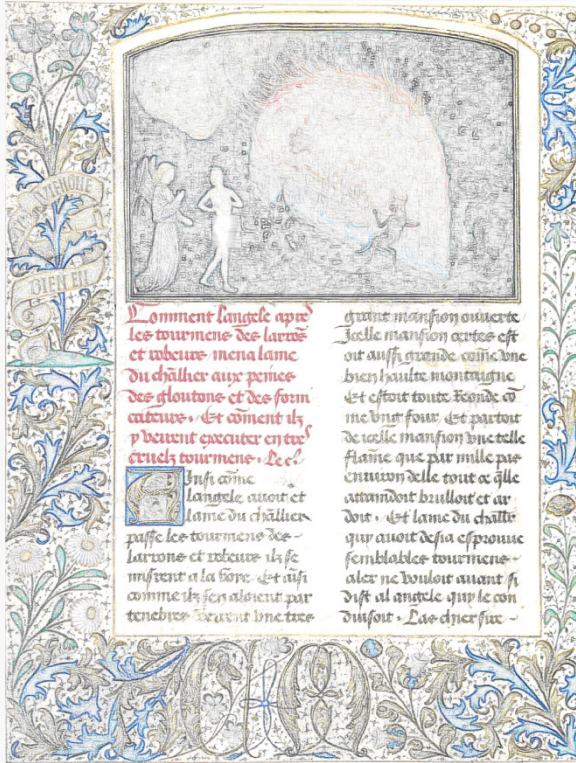 BIEN EN
Comment langele apres
les tourmens des larrōs
et robeurs mena lame
du chāllier aux peines
des gloutons et des forni
cateurs. Et cōment ilz
y veirent executer en tres
cruelz tourmens. Le c.
Ainsi cōme
langele auoit et
lame du chāllier
passe les tourmens des
larrons et robeurs ilz se
misrent a la voye. Et ainsi
comme ilz sen aloient par
tenebres veirent vne tres
grant mansion ouuerte
Icelle mansion certes est
oit aussi grande cōme vne
bien haulte montaigne
Et estoit toute Ronde cō
me vng four. Et partoit
de icelle mansion vne telle
flāme que par mille pas
enuiron delle tout ce q̄lle
attaindoit brulloit et ar
doit. Et lame du chāllr
quy auoit desia esprouue
semblables tourmens
aler ne vouloit auant si
dist al angele quy le con
duisoit. Las chier sire